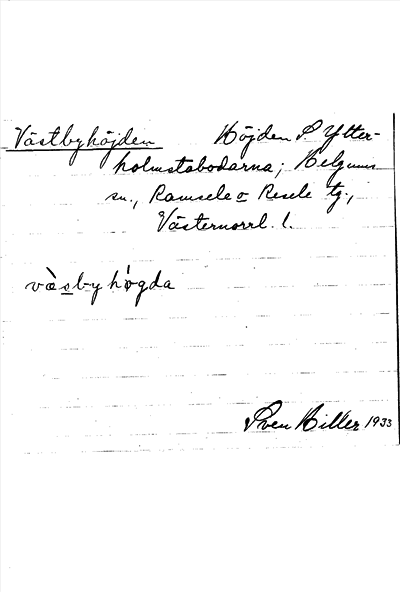 Västbyhöjden Höjden S. Ytter-
holmstabodarna; Helgums
sn., Ramsele o Resele tg.,
Västernorrl. l.
vàsby högda
Sven Hiller 1933